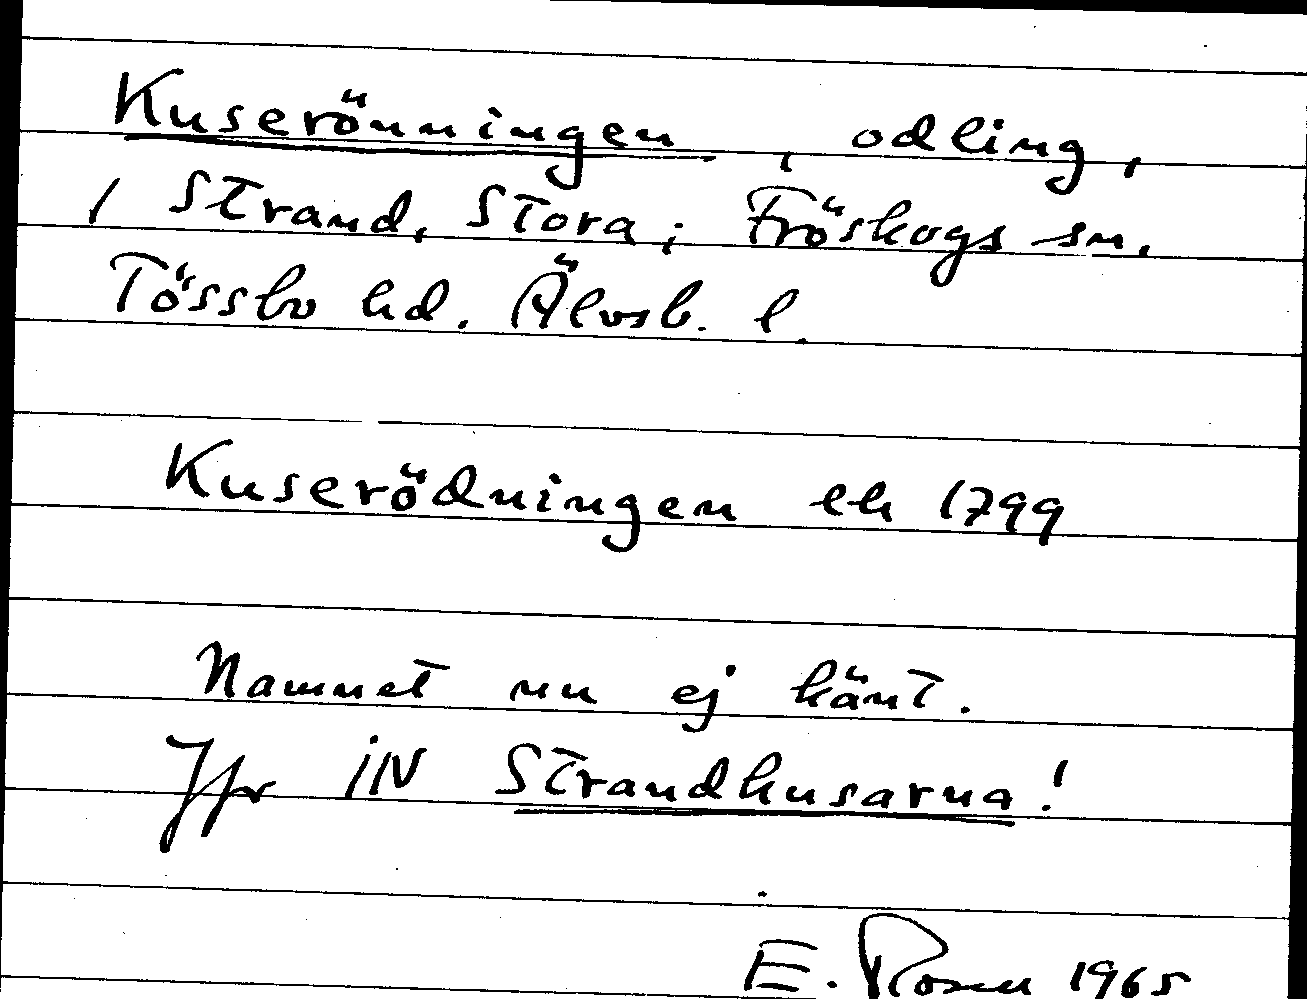 Kuserönningen, odling,
/ Strand, Stora; Fröskogs sn.
Tössbo hd. Älvsb. l.
Kuserödningen lh 1799
Namnet nu ej känt.
Jfr iN Strandhusarna!
E. Rosen 1965